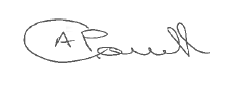 A Powell